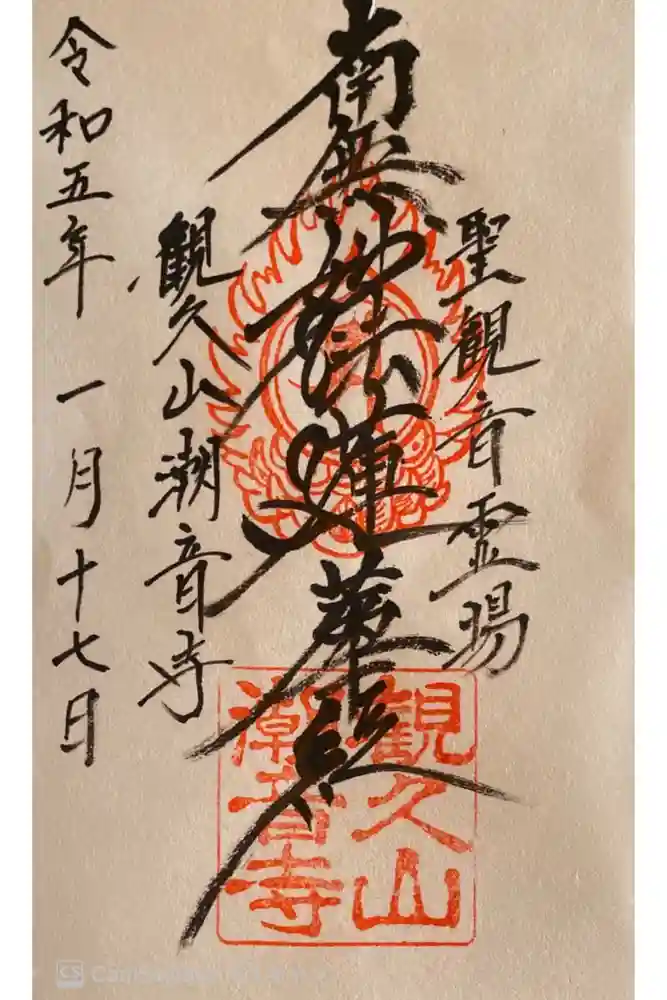 聖観音霊場
南無妙法蓮華経
観久山潮音寺
令和五年 一月十七日
観久山
潮音寺
CS CamScanner